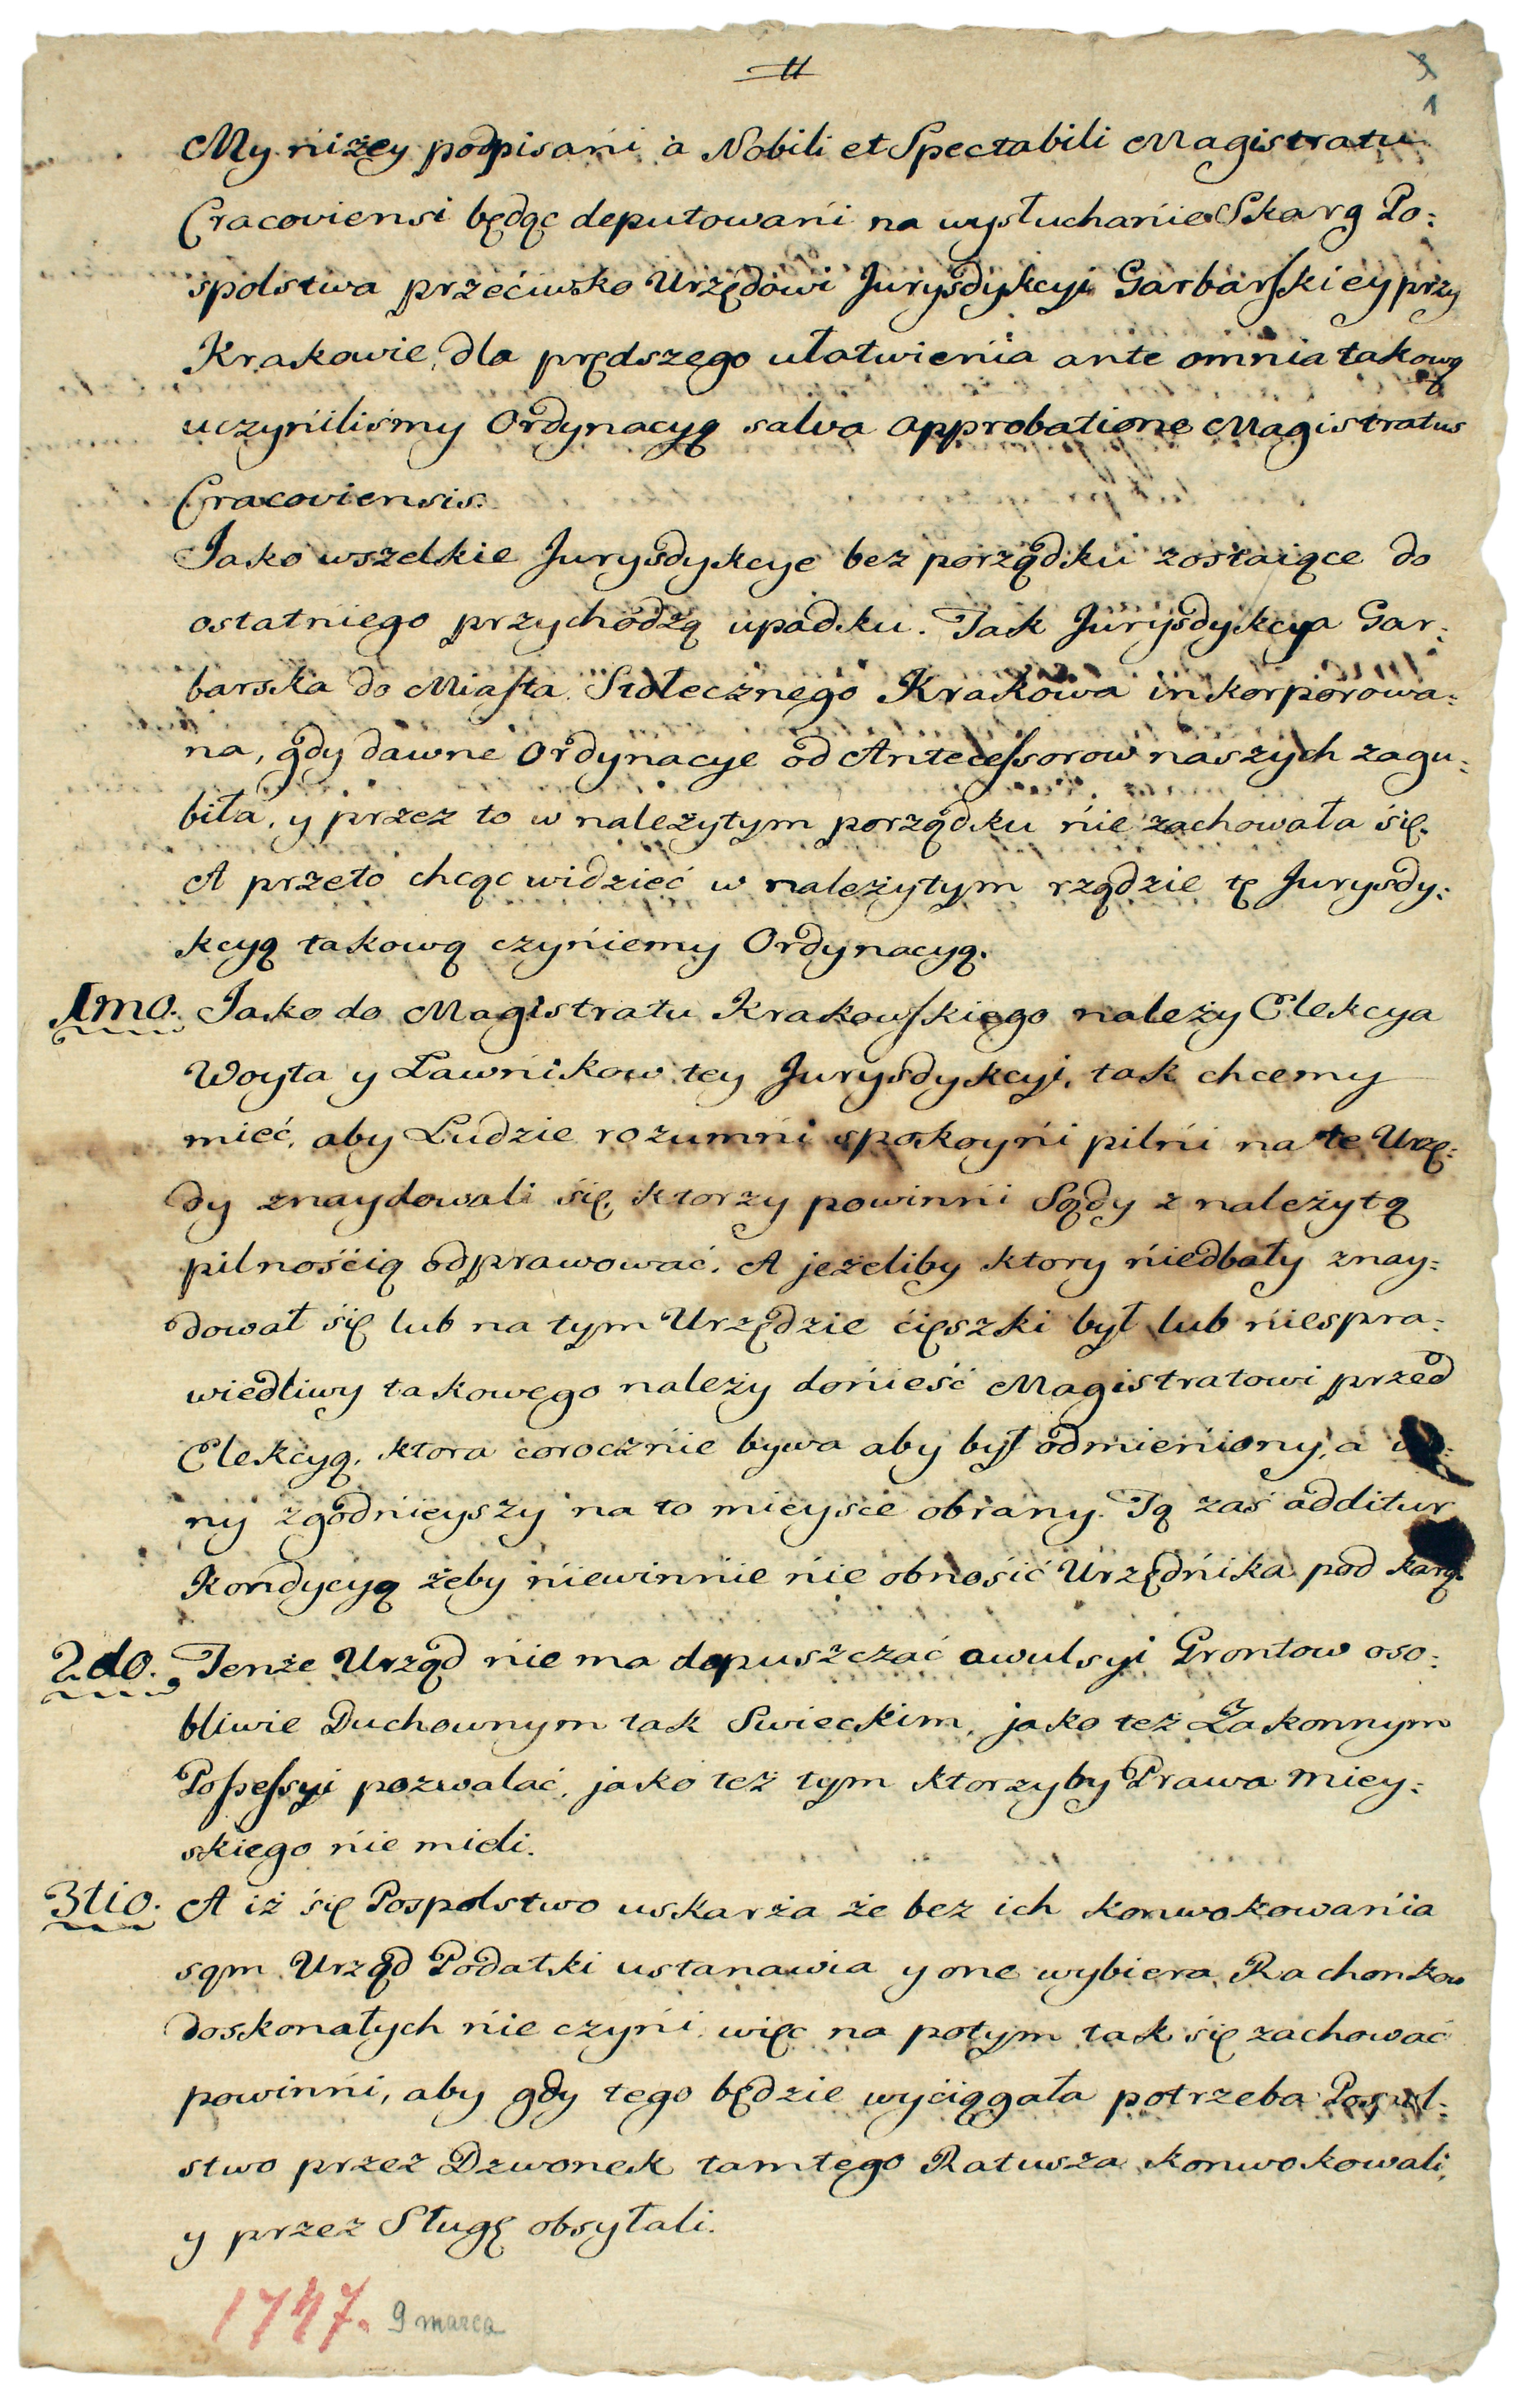 1
My niżey podpisani à Nobili et Spectabili Magistratu
Cracoviensi będąc deputowani na wysłuchanie Skarg Po:
spolstwa przećiwko Urzędowi Jurysdykcyi Garbarskiey przy
Krakowie, dla prędszego ułatwienia ante omnia takową
uczyniliśmy Ordynacyą salva approbatione Magistratus
Cracoviensis.
Jako wszelkie Jurysdykcye bez porządku zostaiące do
ostatniego przychodzą upadku. Tak Jurysdykcya Gar:
barska do Miasta Stołecznego Krakowa inkorporowa:
na, gdy dawne Ordynacye od Antecessorow naszych zagu:
biła, y przez to w należytym porządku nie zachowała śię.
A przeto chcąc widzieć w należytym rządzie tę Jurysdy:
kcyą takową czyniemy Ordynacyą.
1mo. Jako do Magistratu Krakowskiego należy Elekcya
Woyta y Ławnikow tey Jurysdykcyi, tak chcemy
mieć, aby Ludzie rozumni spokoyni pilni na te Urzę:
dy znaydowali śię, ktorzy powinni Sądy z należytą
pilnośćią odprawować. A jeżeliby ktory niedbały znay:
dował śię lub na tym Urzędzie ćięszki był lub niespra:
wiedliwy takowego należy donieść Magistratowi przed
Elekcyą, ktora corocznie bywa aby był odmieniony, a
ny zgodnieyszy na to mieysce obrany. Tą zaś additur
Kondycyą żeby niewinnie nie obnośić Urzędnika pod karą.
2do. Tenże Urząd nie ma dopuszczać awulsyi Grontow oso:
bliwie Duchownym tak Swieckim, jako też Zakonnym
Possessyi pozwalać, jako też tym ktorzyby Prawa Miey:
skiego nie mieli.
3tio. A iż śię Pospolstwo uskarża że bez ich konwokowania
sąm Urząd Podatki ustanawia y one wybiera, Rachonkow
doskonałych nie czyni, więc na potym tak śię zachować
powinni, aby gdy tego będzie wyćiągała potrzeba Pospol:
stwo przez Dzwonek tamtego Ratusza konwokowali,
y przez Sługę obsyłali.
1747. 9 marca